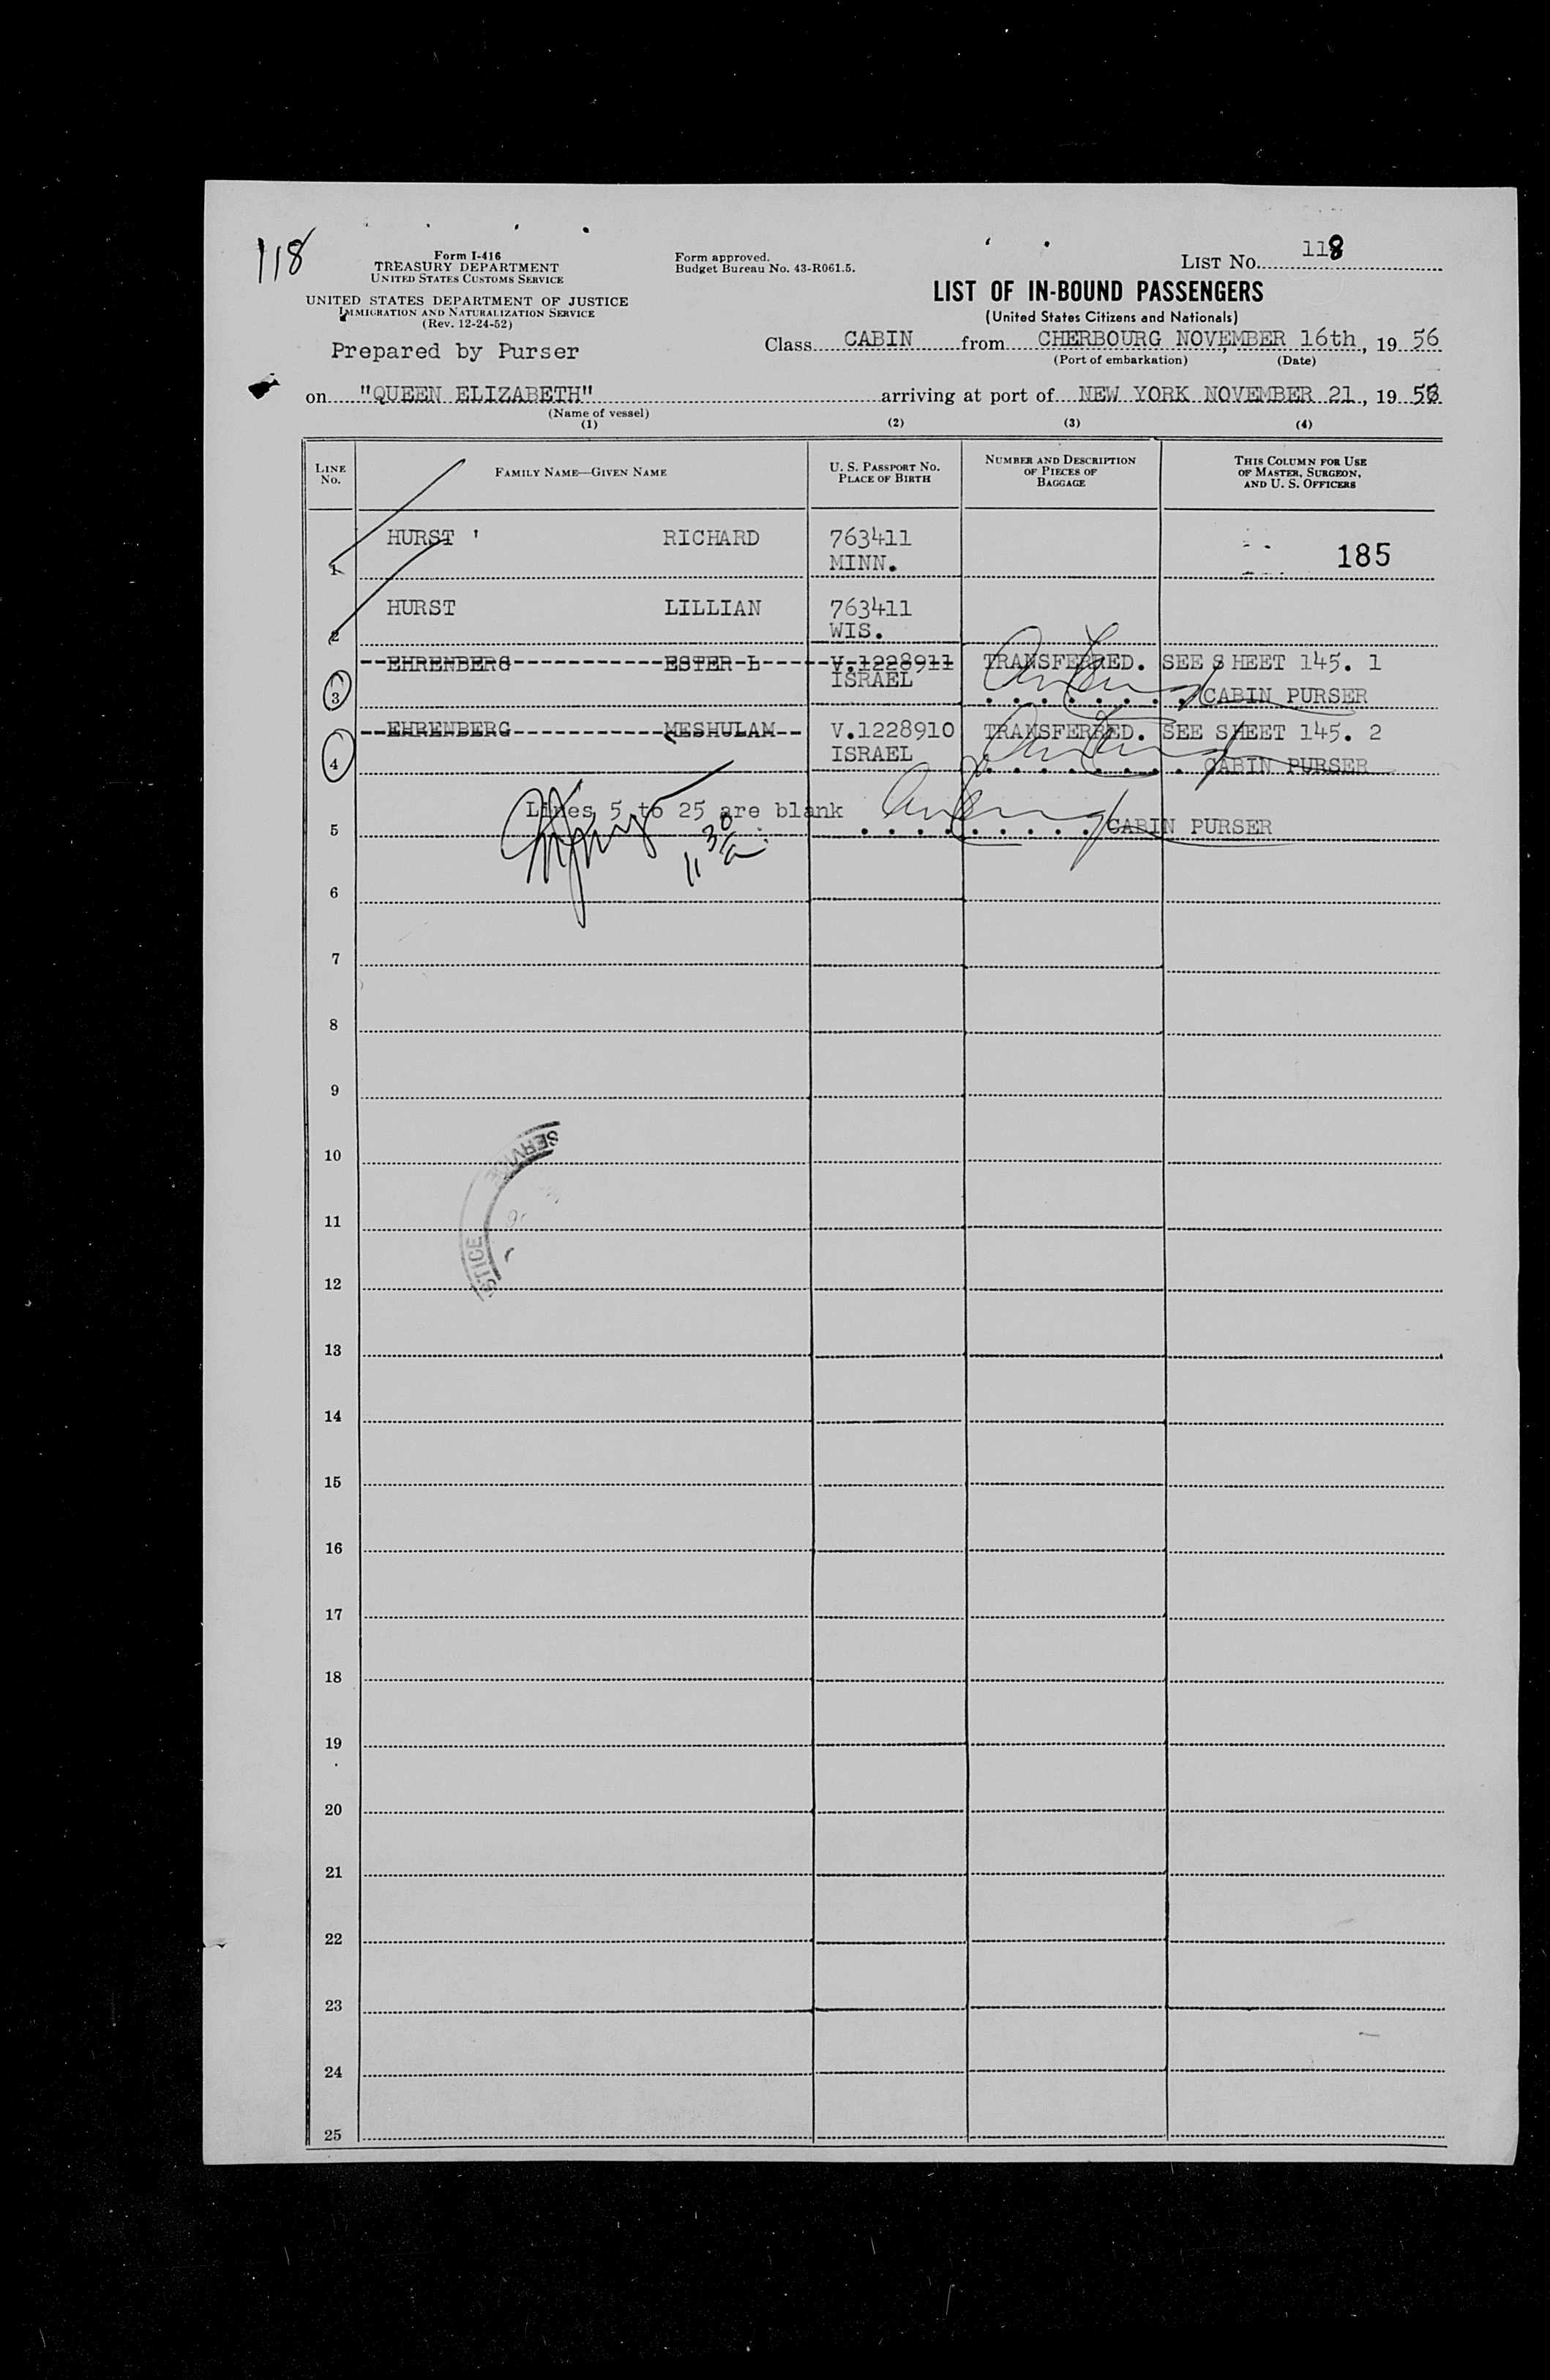 118
Form I-416
TREASURY DEPARTMENT
UNITED STATES CUSTOMS SERVICE
UNITED STATES DEPARTMENT OF JUSTICE
IMMIGRATION AND NATURALIZATION SERVICE
(Rev. 12-24-52)
Prepared by Purser
Form approved.
Budget Bureau No. 43-R061.5.
LIST NO. 118
LIST OF IN-BOUND PASSENGERS
(United States Citizens and Nationals)
Class CABIN from CHERBOURG NOVEMBER 16th, 19 56
(Port of embarkation) (Date)
on "QUEEN ELIZABETH" arriving at port of NEW YORK NOVEMBER 21, 19 56
(Name of vessel)
(1) (2) (3) (4)
LINE NO. FAMILY NAME—GIVEN NAME U. S. PASSPORT NO. PLACE OF BIRTH NUMBER AND DESCRIPTION OF PIECES OF BAGGAGE THIS COLUMN FOR USE OF MASTER, SURGEON, AND U. S. OFFICERS
1 HURST ' RICHARD 763411
MINN. 185
2 HURST LILLIAN 763411
WIS.
3 --EHRENBERG-----------ESTER-L-----V.1228911 TRANSFERRED. SEE SHEET 145. 1
ISRAEL
CABIN PURSER
4 --EHRENBERG-----------MESHULAM-- V.1228910 TRANSFERRED. SEE SHEET 145. 2
ISRAEL
CABIN PURSER
Lines 5 to 25 are blank
5 CABIN PURSER
11 30 a.
6
7
8
9
10
SERVICE
11
STICE
12
13
14
15
16
17
18
19
20
21
22
23
24
25